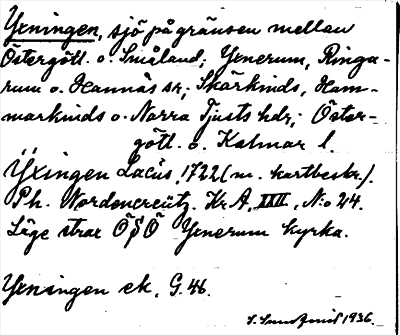 Yxningen, sjö på gränsen mellan
Östergötl. o. Småland; Yxnerum, Ringa-
rum o. Hannäs sr; Skärkinds, Ham-
markinds o. Norra Tjusts hdr; Öster-
götl. o. Kalmar l.
Ÿxingen Lacus, 1722 (m. kartbeskr.).
Ph. Nordencreutz. Kr. A, XXII, N:o 24.
Läge strax ÖSÖ Yxnerum kyrka.
Yxningen ek. G. 46.
1936.